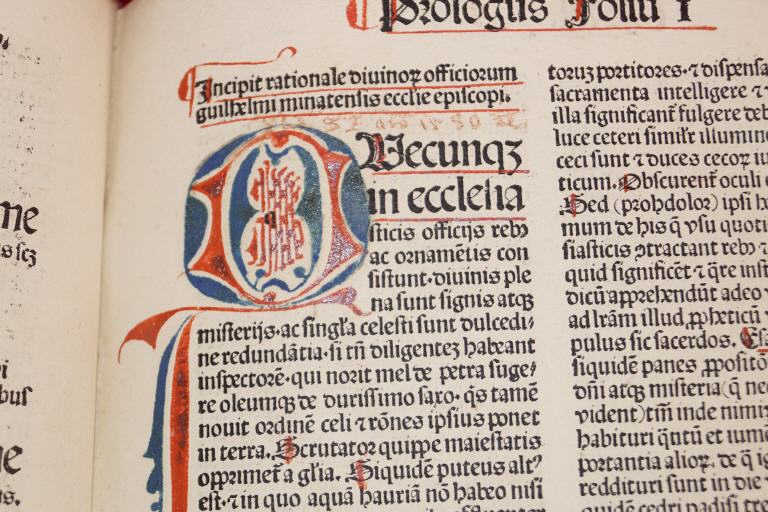 Prologus Foliū I
Incipit rationale diuinoꝝ officiorum
guilhelmi minatensis ecclīe episcopi.
QVecunqꝫ
in ecclesia
sticis officijs rebꝰ
ac ornamētis con
sistunt·diuinis ple
na sunt signis atqꝫ
misterijs·ac singl'a celesti sunt dulcedi-
ne redundātia·si tn̄ diligentez habeant
inspectorē·qui norit mel de petra suge-
re oleumqꝫ de durissimo saxo. q̇s tamē
nouit ordinē celi ⁊ rōnes ipsius ponet
in terra. Scrutator quippe maiestatis
opprimet᷑ a gl'ia. Siquidē puteus altꝰ
est·⁊ in quo aquā hauriā nō habeo nisi
toruꝫ portitores·⁊ dispensa
sacramenta intelligere ⁊
illa significant᷑ fulgere deb
luce ceteri simil'r illumin
ceci sunt ⁊ duces cecoꝝ iu
ticum. Obscurent᷑ oculi e
Sed (prohdolor) ipsi h
mum de his q̄ vsu quoti
siasticis ꝯtractant rebꝰ ⁊
quid significēt ⁊ q̄re inst
dicū apprehendūt adeo v
ad lr̄am illud ꝓpheticū v
pulus sic sacerdos.
siquidē panes ꝓpositō
dn̄i atqꝫ misteria (q̄ ne
vident) tn̄ inde nimi
habituri q̄ntū et iume
portantia alioꝝ. de q̄ ig
reddituri sunt in die
quidē cedri padisi tre
me
bus